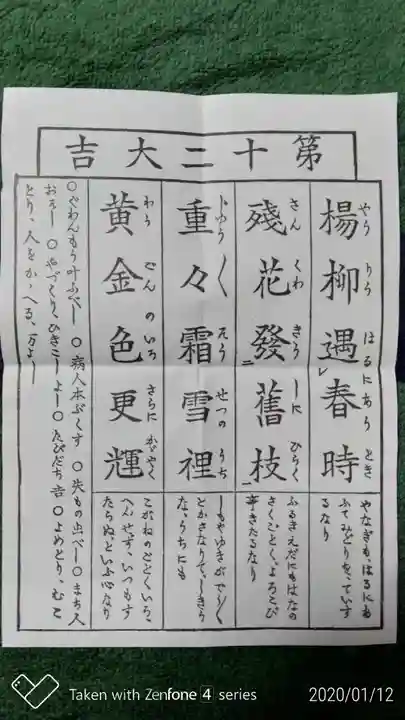 第十二大吉
楊柳遇春時
やうりうはるにあうとき
やなぎも、はるにも
ふてみどりをていす
るなり
殘花發舊枝
ざんくわきうしにひらく
ふるきえだにもはなの
さくごとく、よろこび
きたるなり
重々霜雪裡
ぢゆう〱さうせつのうち
しもやゆきがで〱
とかさなりて、しきら
な、うちにも
黄金色更輝
わうごんのいろさらにかゞやく
こがねのごとくいろ、
へんせず、いつもす
たらぬといふ心なり
○ぐわんもう叶ふべし ○病人本ぶくす ○失もの出べし○まち人
おそし ○やづくり、ひきこしよし○たびだち吉 ○よめとり、むこ
とり、人をかゝへる、万よし
Taken with Zenfone 4 series
2020/01/12